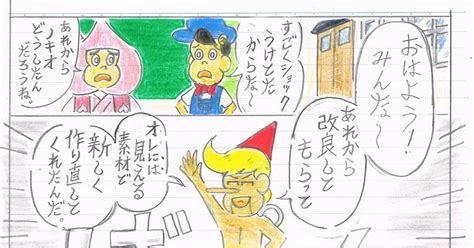 すっごくショック
うけとった
からな～
あれから
ノキオ
どうしたん
だろうね。
おはよう！
みんな～
あれから
改良して
もらって
オレには
見えてる
素材で
新しく
作り直して
くれたんだ。